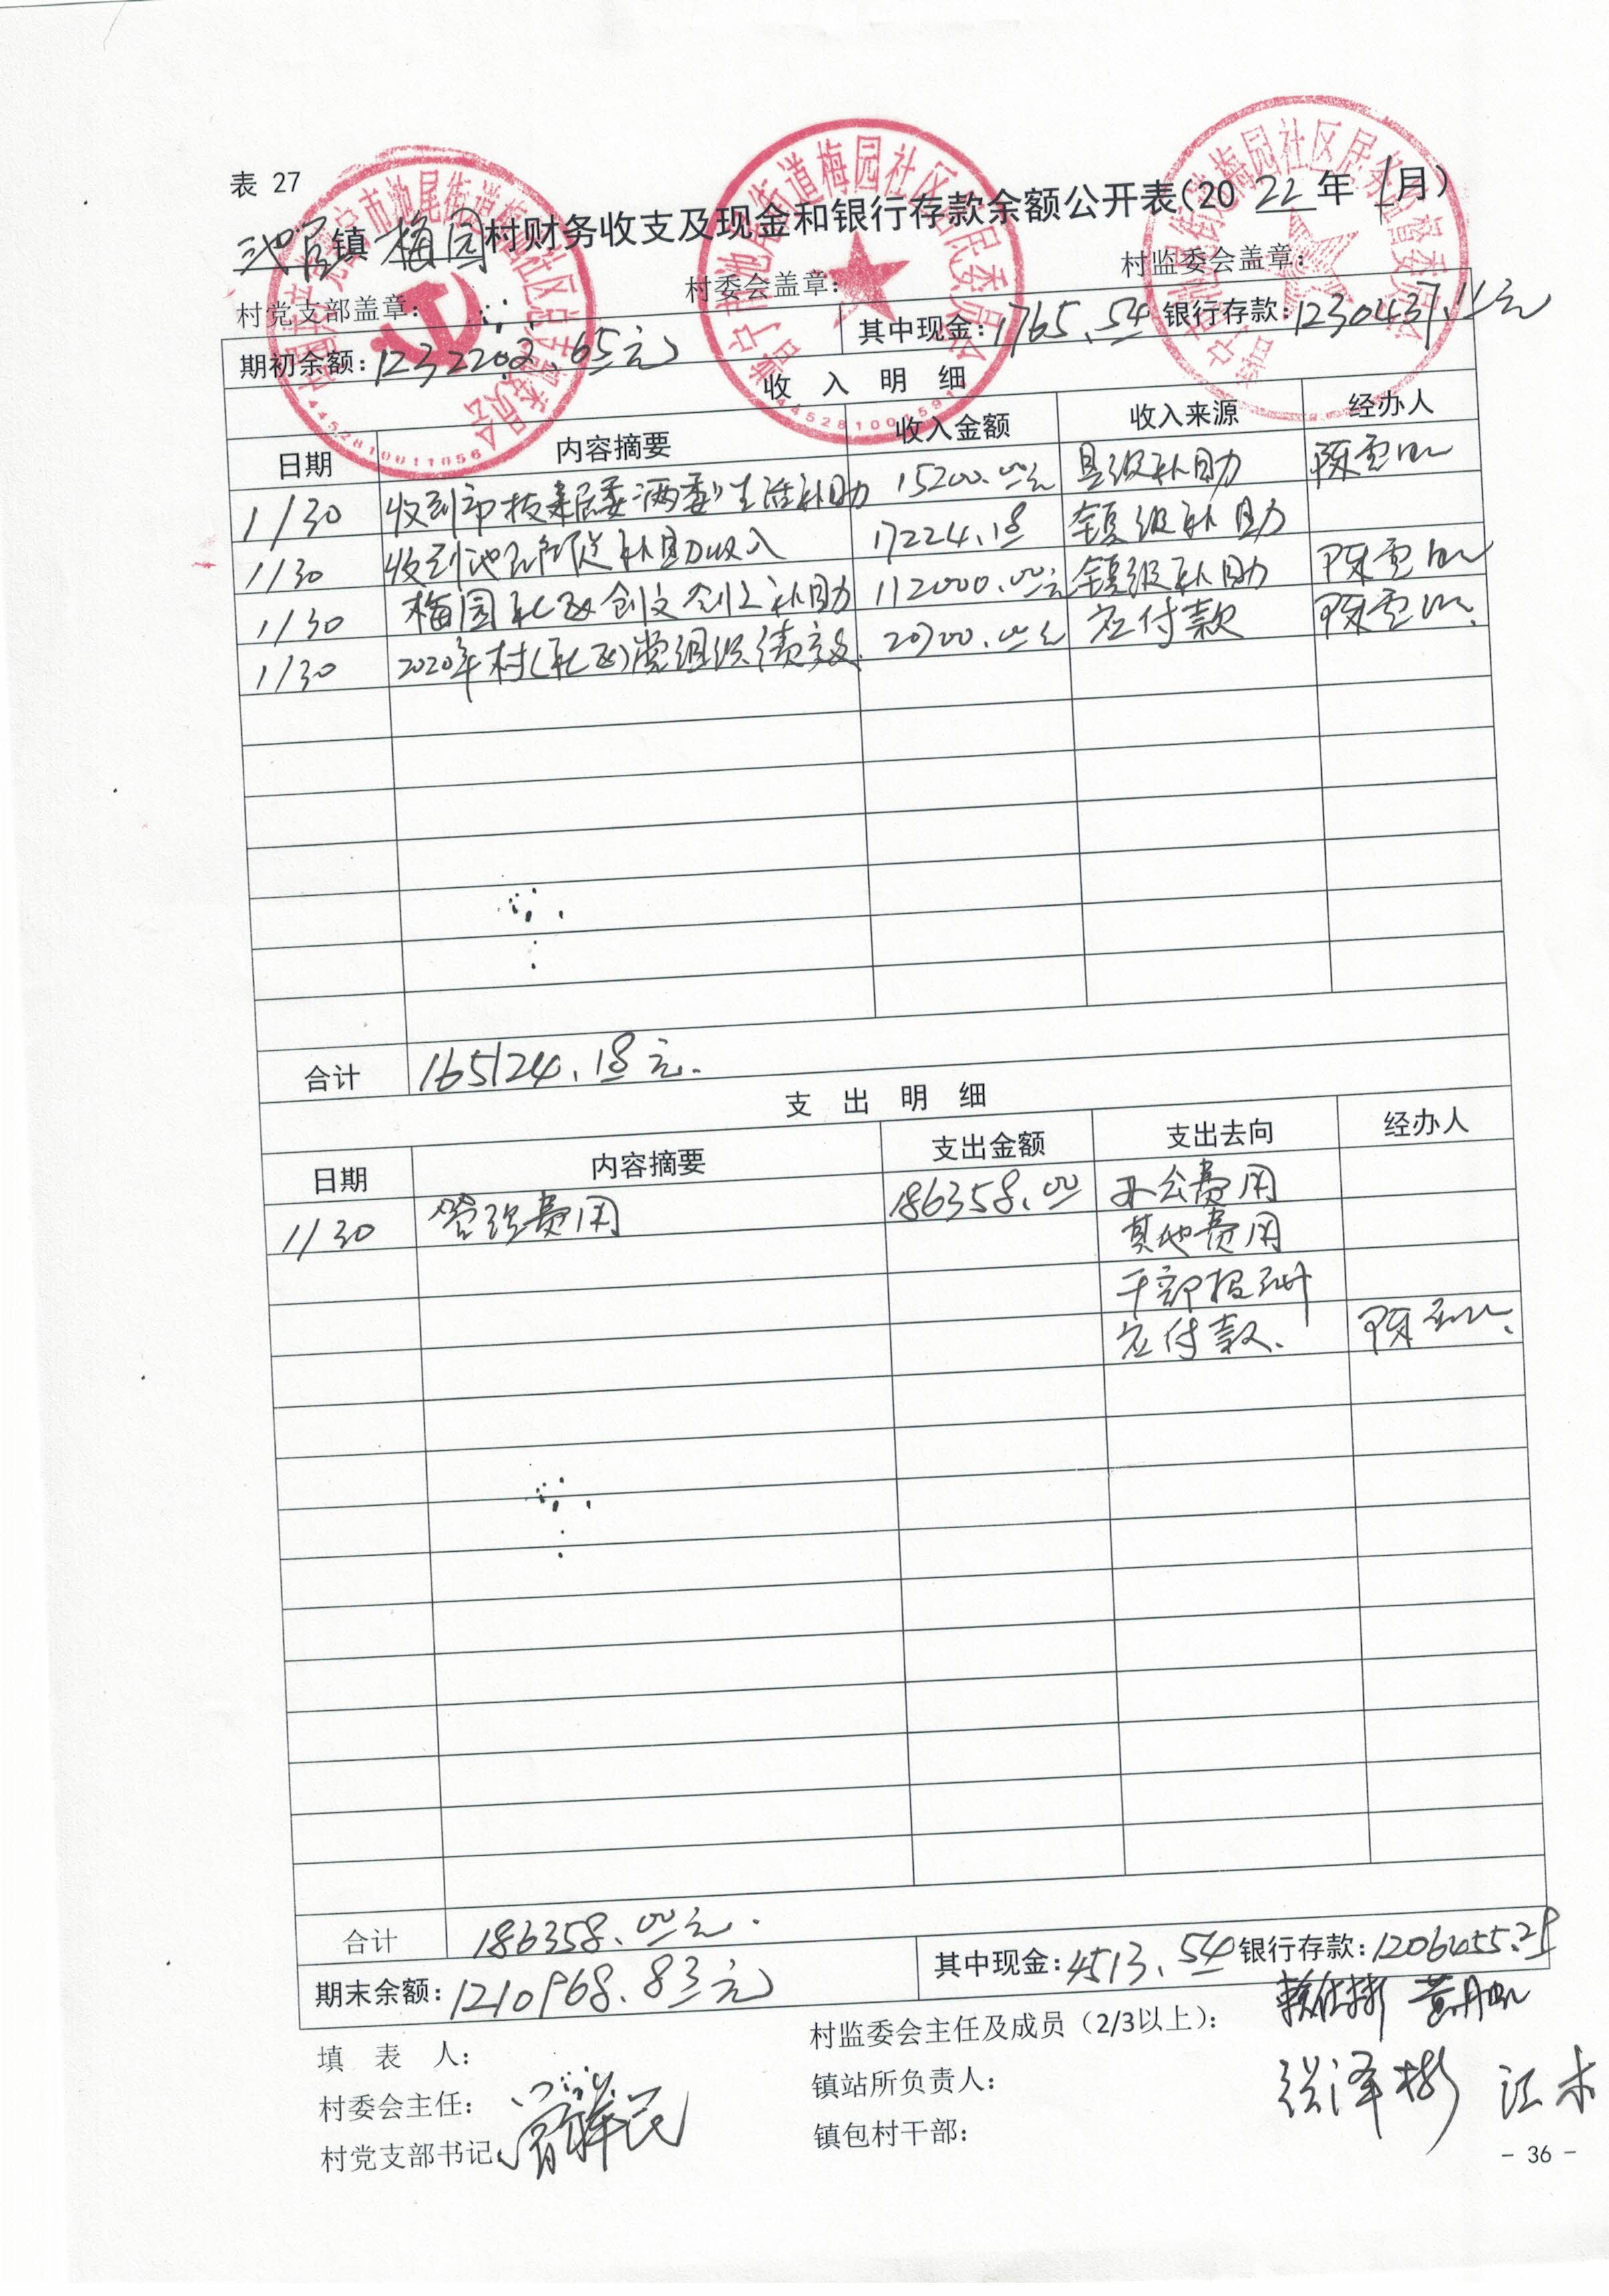 表 27
池尾镇 梅园村财务收支及现金和银行存款余额公开表(2022年 1月)
村党支部盖章: 村委会盖章: 村监委会盖章:
期初余额:1232202.65元 其中现金:1765.54 银行存款:1230437.11元
收 入 明 细
日期 内容摘要 收入金额 收入来源 经办人
1/30 收到市拨来居委“两委”生活补助 15200.00元 县级补助
1/30 收到池尾街道补助收入 17224.18 镇级补助
1/30 梅园社区创文创卫补助 112000.00元 镇级补助
1/30 2020年村(社区)党组织绩效 20700.00元 应付款
合计 165124.18元.
支 出 明 细
日期 内容摘要 支出金额 支出去向 经办人
1/30 管理费用 186358.00 办公费用
其他费用
干部报酬
应付款.
合计 186358.00元.
期末余额:1210968.83元 其中现金:4513.54 银行存款:1206455.29
填 表 人: 村监委会主任及成员(2/3以上):
村委会主任: 镇站所负责人: 张泽彬
村党支部书记: 镇包村干部:
- 36 -
普宁市池尾街道梅园社区居民委员会
4452810011056